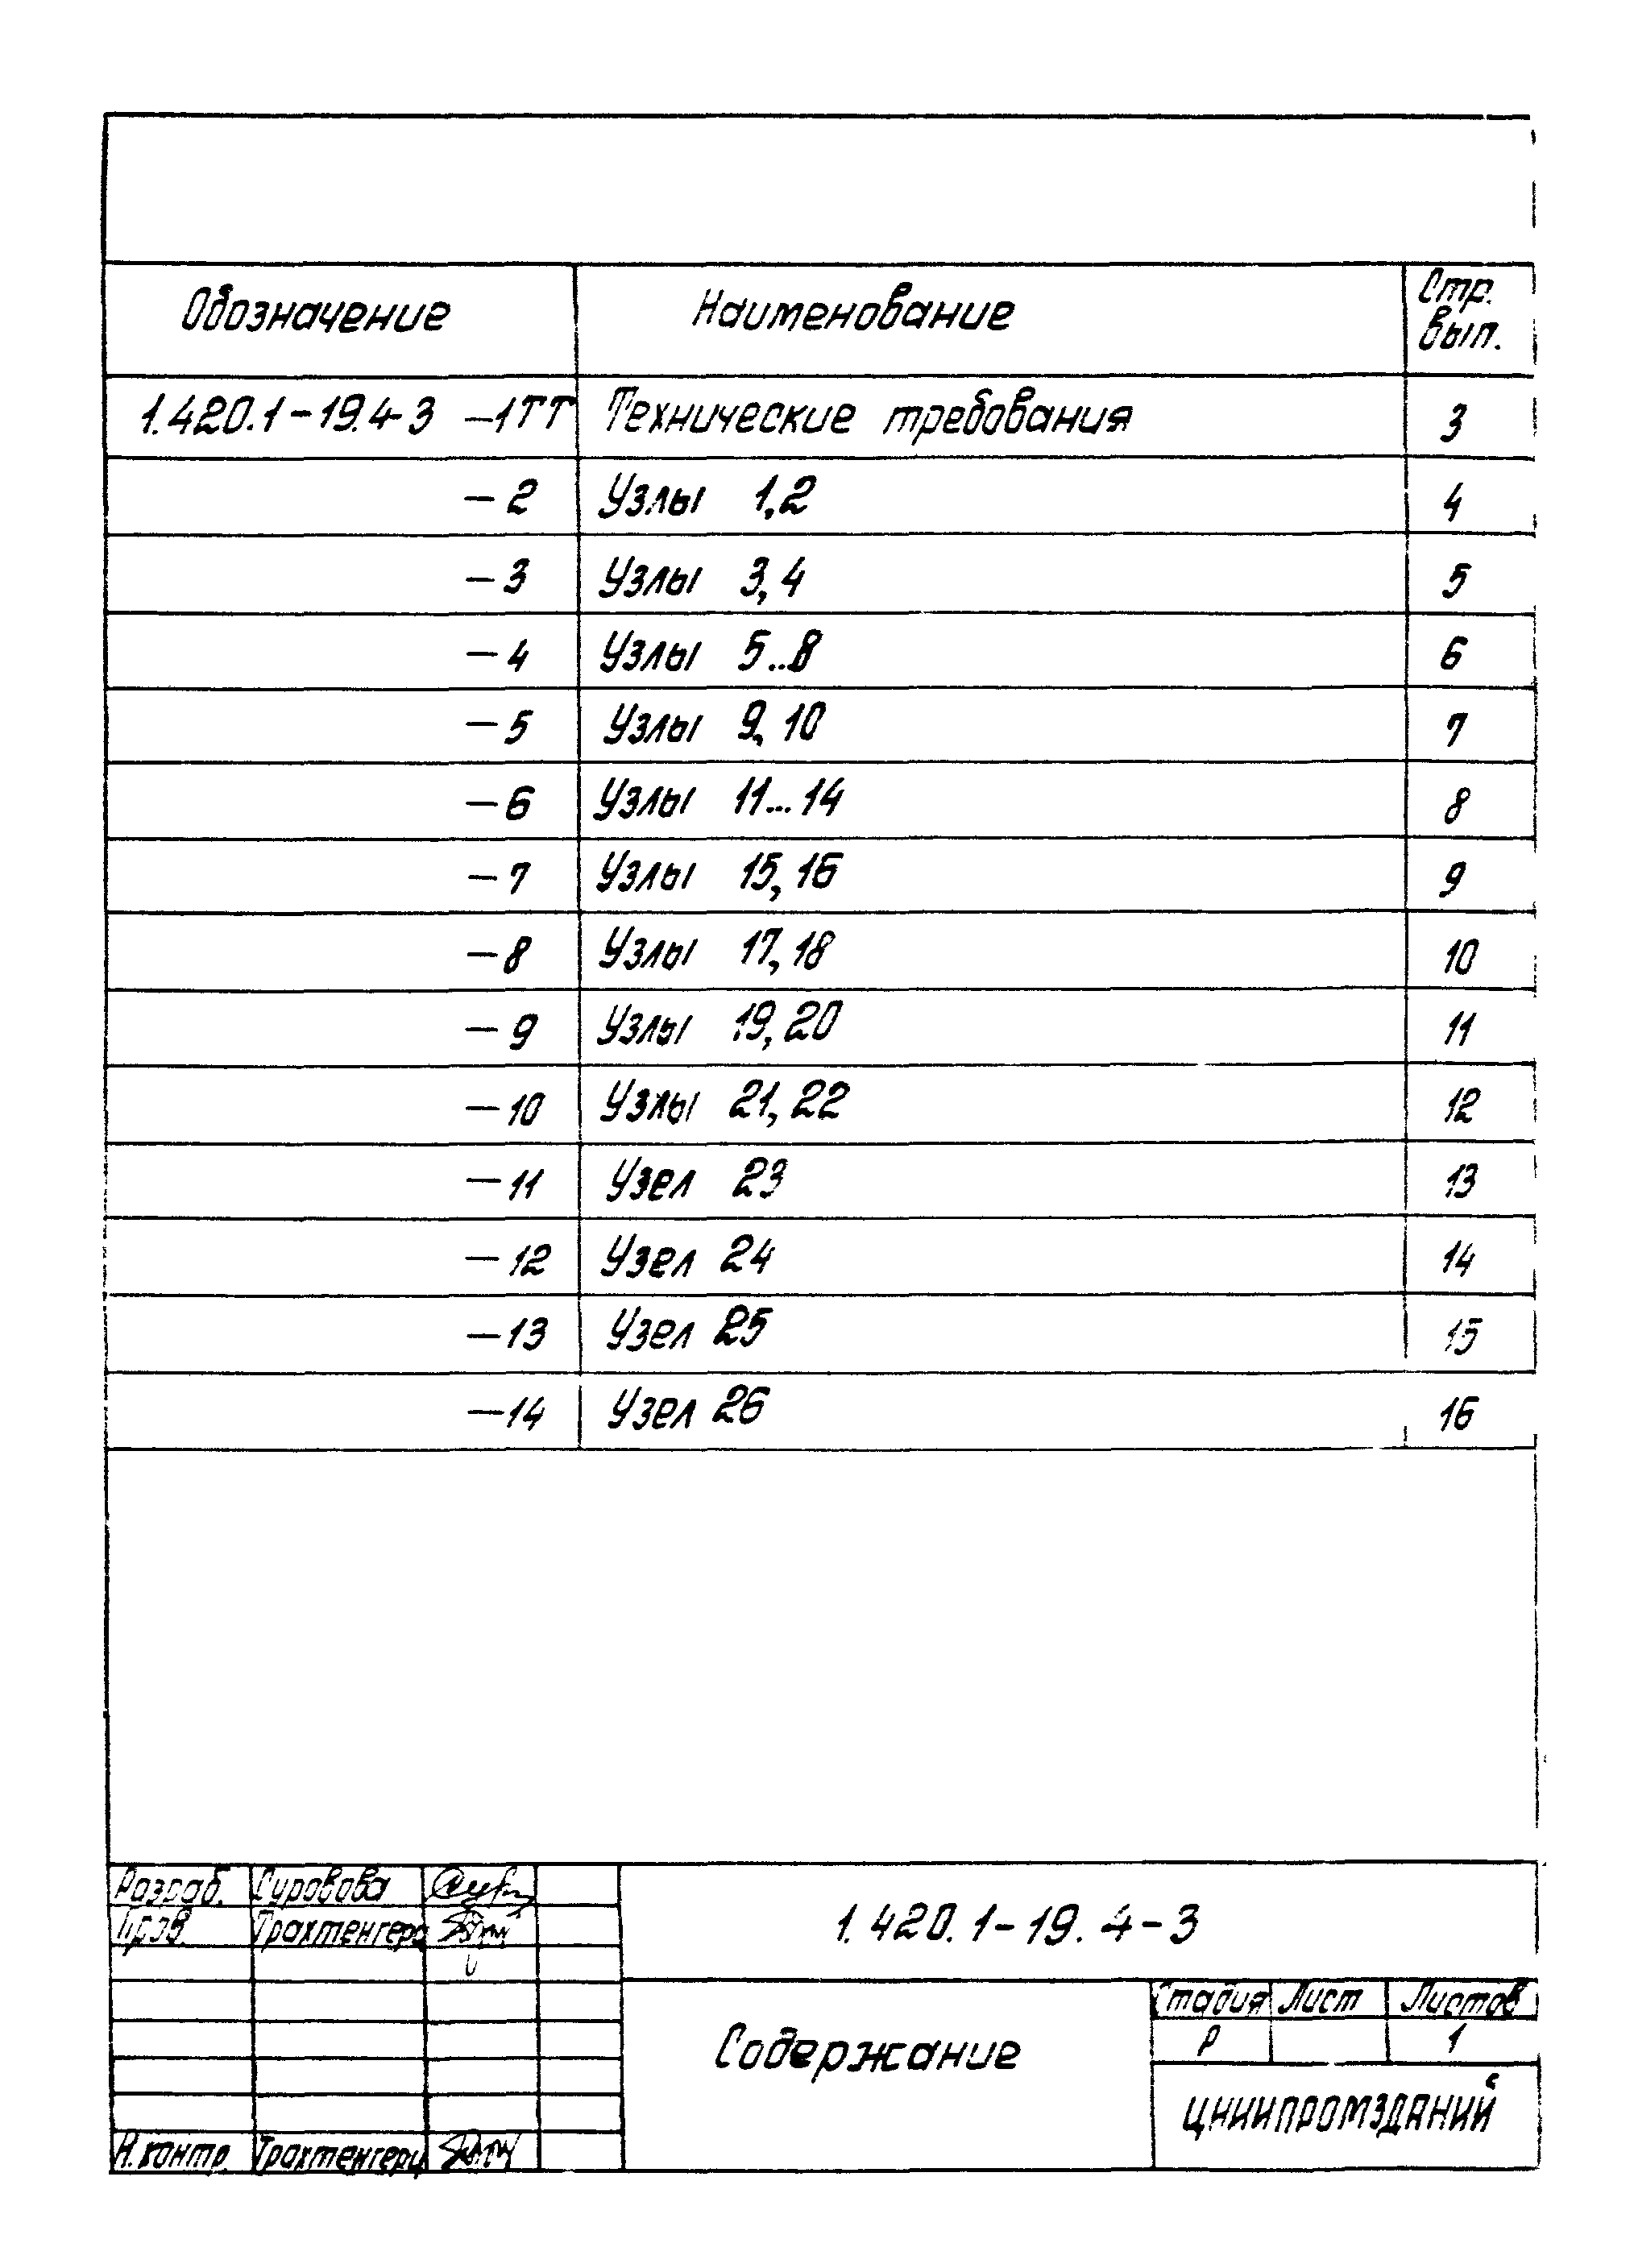 Обозначение Наименование Стр. вып.
1.420.1-19.4-3 -1ТТ Технические требования 3
-2 Узлы 1,2 4
-3 Узлы 3,4 5
-4 Узлы 5...8 6
-5 Узлы 9,10 7
-6 Узлы 11...14 8
-7 Узлы 15,16 9
-8 Узлы 17,18 10
-9 Узлы 19,20 11
-10 Узлы 21,22 12
-11 Узел 23 13
-12 Узел 24 14
-13 Узел 25 15
-14 Узел 26 16
Разраб. Суровова
Пров. Трахтенгерц
1.420.1-19.4-3
Содержание
Стадия Лист Листов
Р 1
ЦНИИПРОМЗДАНИЙ
Н.контр. Трахтенгерц